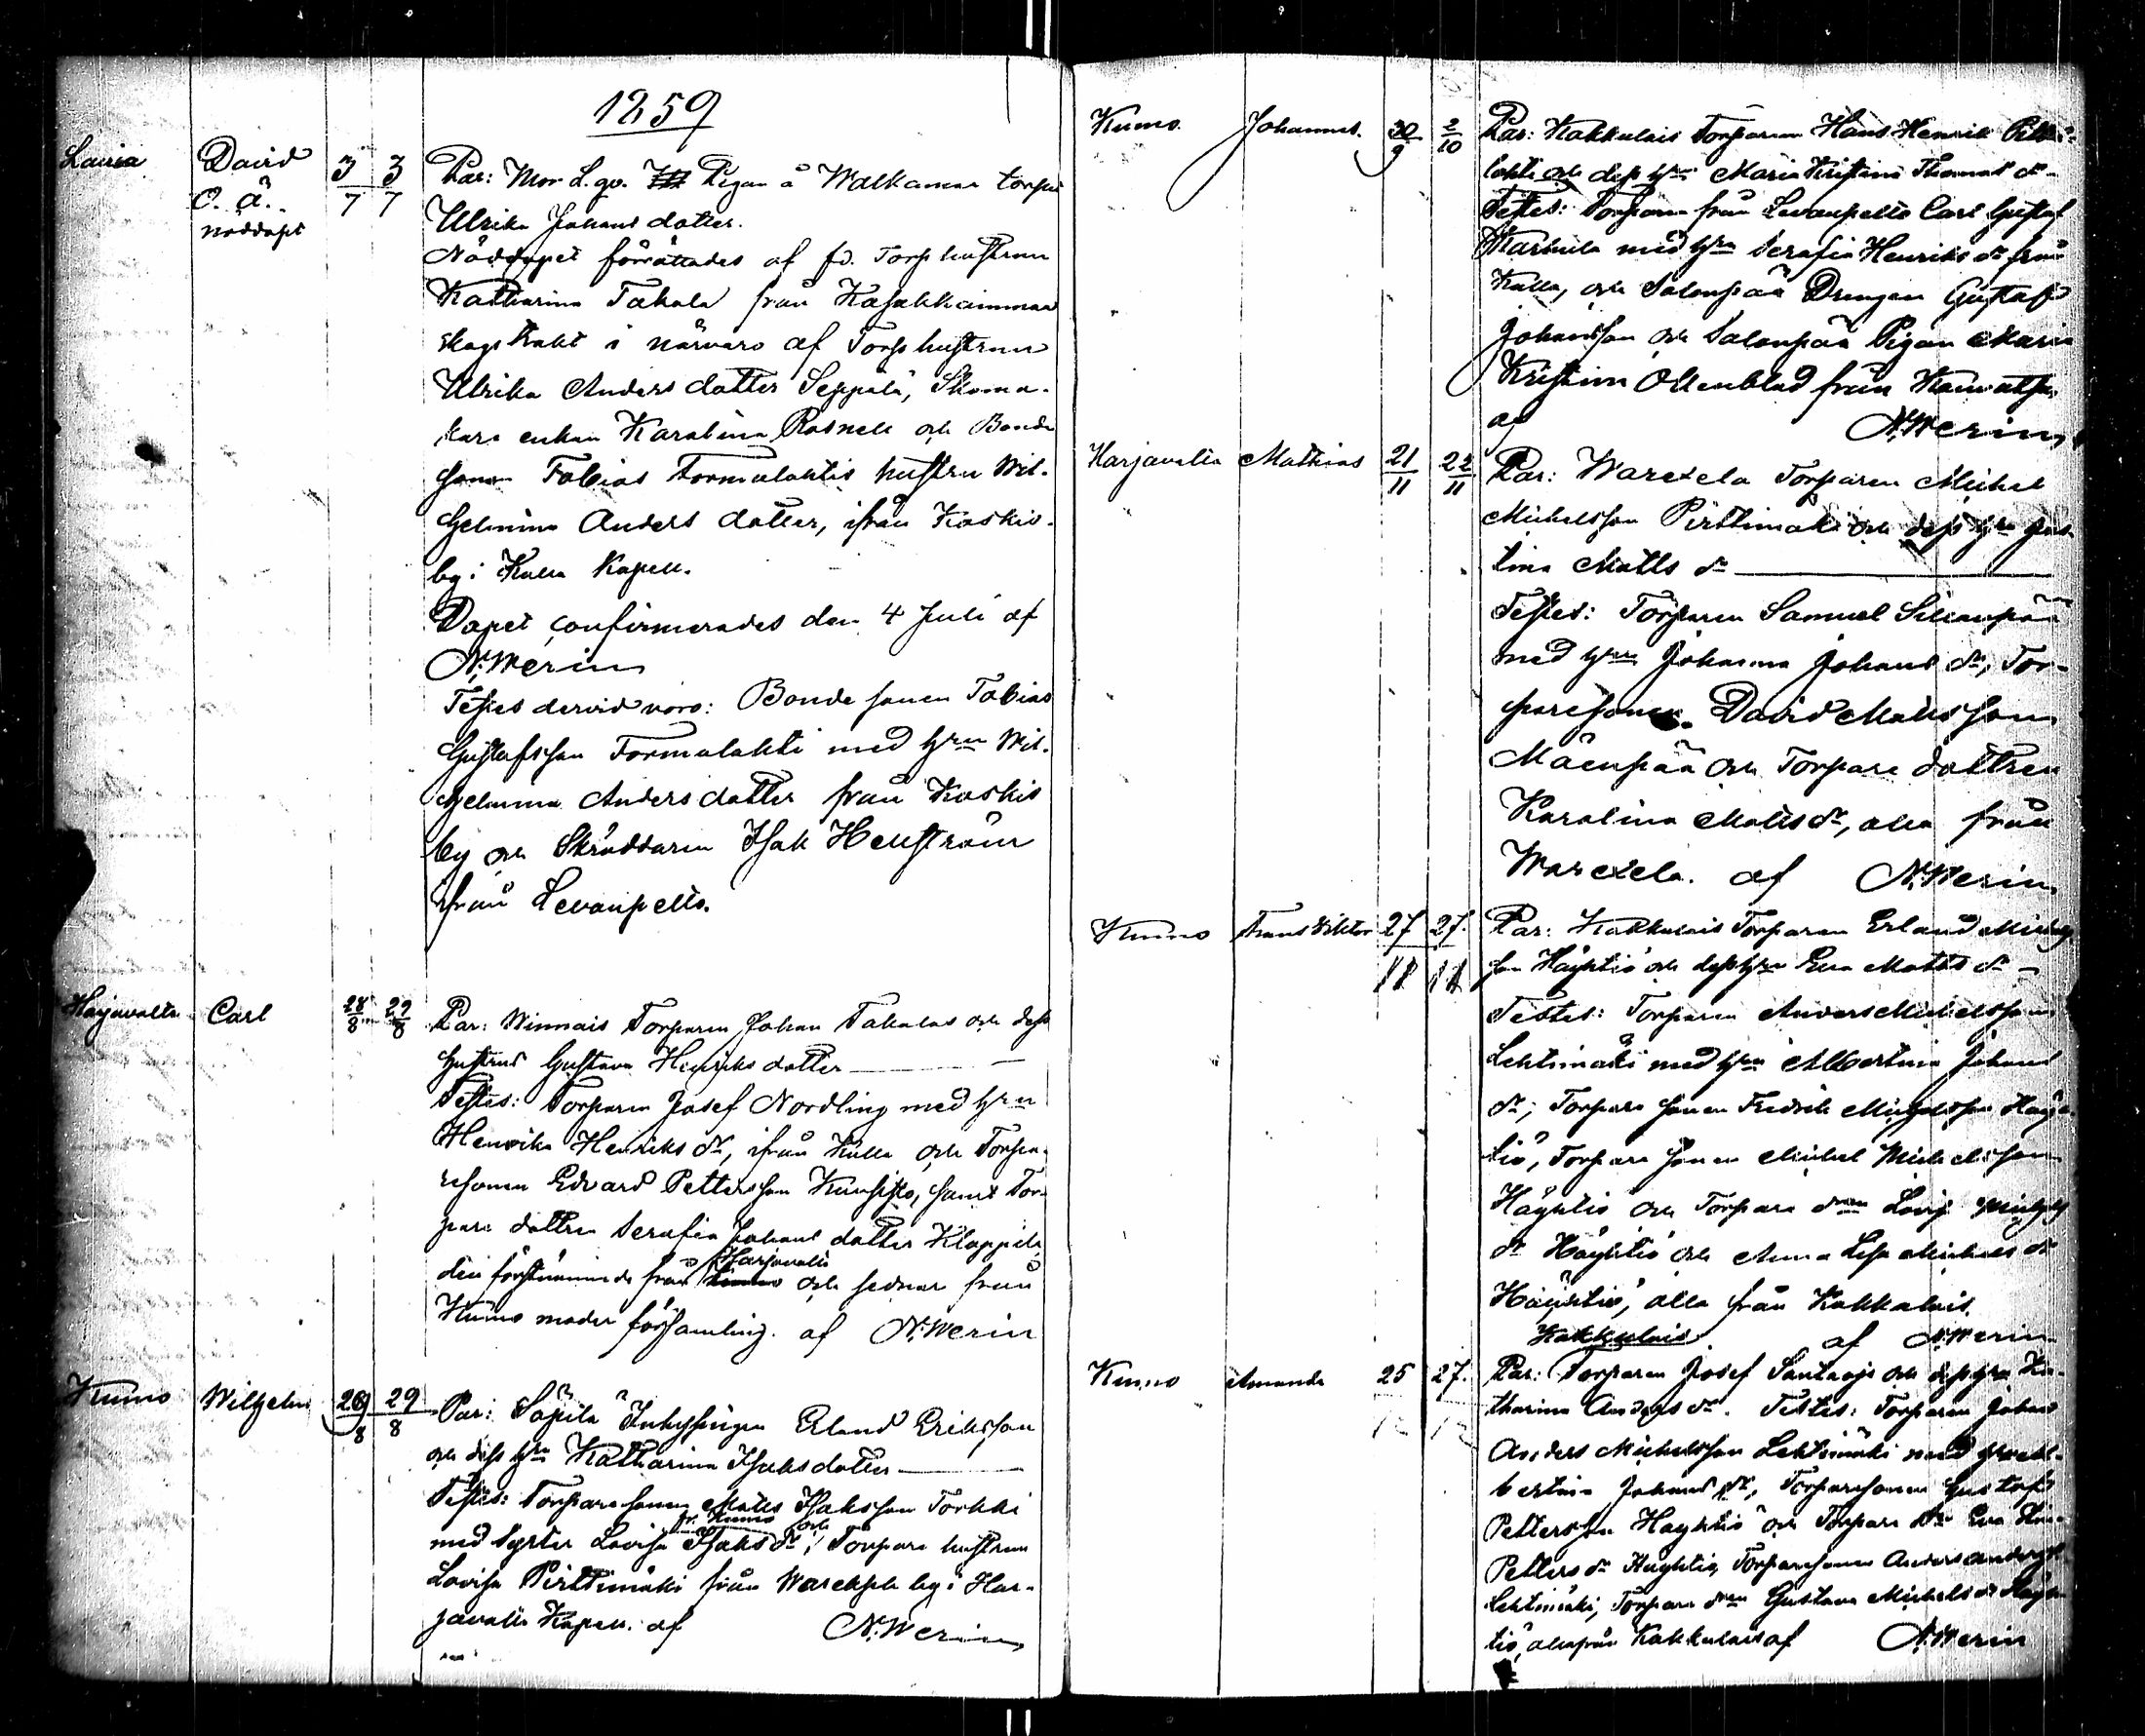 1859
Lavia David 3/7 3/7 Par: Mor L.qv. Pigan å Walkamaa torpa
O. Ä. Ulrika Johans dotter.
nöddöpt
Nöddopet förrättades af fd. Torp hustrun
Katharina Takala från Kasakkaimmaa
skogstrakt i närvaro af Torp hustrun
Ulrika Anders dotter Seppälä, Skoma-
kare enkan Karolina Rosnell och Bonde
sonen Tobias Tormalahtis hustru Wil-
helmina Anders dotter, ifrån Koskis
by i Kulla Kapell.
Dopet confirmerades den 4 Juli af
N. Merin
Testes dervid voro: Bonde sonen Tobias
Gustafsson Tormalahti med Hrn Wil-
helmina Anders dotter från Koskis
by och Skräddaren Isak Hellström
ifrån Levanpelto.
Harjavalta Carl 28/8 29/8 Par: Winnais Torparen Johan Takalas och dess
hustrus Gustava Henriks dotter
Testes: Torparen Josef Nordling med Hrn
Henrika Henriks dr, ifrån Kulla och Torpa-
resonen Edvard Pettersson Kuusisto, samt Tor-
pare dottren Serafia Johans dotter Klappila
den förstnämnde från Harjavalta och sednare från
Kumo moder församling. af N. Merin
Kumo Wilhelm 26/8 29/8 Par: Säpilä Inhysingen Erland Eriksson
och dess Hrn Katharina Isaks dotter
Testes: Torpare sonen Matts Isaksson Torkki
med Syster Lovisa Isaks dr, fr. Kumo och Torpare hustrun
Lovisa Pirttimäki från Warekselä by i Har-
javalta Kapell. af N. Merin
Kumo. Johannes. 30/9 2/10 Par: Kakkulais Torparen Hans Henrik
lahti och dess Hrn Maria Kristina Thomas dr
Testes: Torparen från Levanpelto Carl Gustaf
Markula med Hrn Serafia Henriks dr från
Kulla, och Salonpää Drengen Gustaf
Johansson och Salonpää Pigan Maria
Kristina Ollenblad från
af N. Merin
Harjavalta Mathias 21/11 22/11 Par: Warexela Torparen Michel
Michelsson Pirttimäki och dess Hrn Jus-
tina Matts dr
Testes: Torparen Samuel Sillanpää
med Hrn Johanna Johans dr, Tor-
paresonen David Mattsson
Mäenpää och Torpare dottren
Karolina Matts dr, alla från
Warexela. af N. Merin
Kumo Frans Viktor 27/11 27/11 Par: Kakkulais Torparen Erland Michels
son Häyhtiö och dess Hrn Eva Matts dr
Testes: Torparen Anders Michelsson
Lehtimäki med Hrn Albertina Johans
dr, Torpare sonen Fredrik Michelsson Häyh-
tiö, Torpare sonen Michel Michelsson
Häyhtiö och Torpare dren Lovis Michels
dr Häyhtiö och Anna Lisa Michels dr
Häyhtiö, alla från Kakkulais.
Kakkulais af N. Merin
Kumo Amanda 25 27. Par: Torparen Josef Santaoja och dess Hrn Ka-
tharina Anders dr. Testes: Torparen Johan
Anders Michelsson Lehtimäki med Hrn Al-
bertina Johans dr, Torparesonen Gustaf
Pettersson Häyhtiö och Torpare dr Eva
Petters dr Häyhtiö, Torparesonen Anders Andersson
Lehtimäki, Torpare dren Gustava Michels dr Häyh-
tiö, alla från Kakkulais af N. Merin